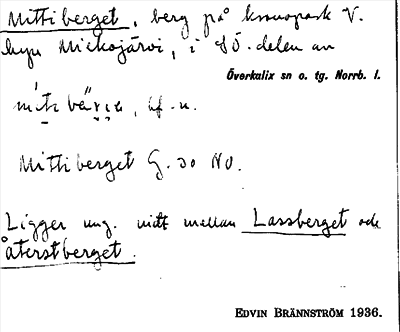 Mittiberget, berg på kronopark V.
lugn Mickojärvi, i SÖ. delen av
Överkalix sn o. tg. Norrb. l.
Mittiberget G. 30 NO.
Ligger ung. mitt mellan Lassberget och
Återstberget.
EDVIN BRÄNNSTRÖM 1936.